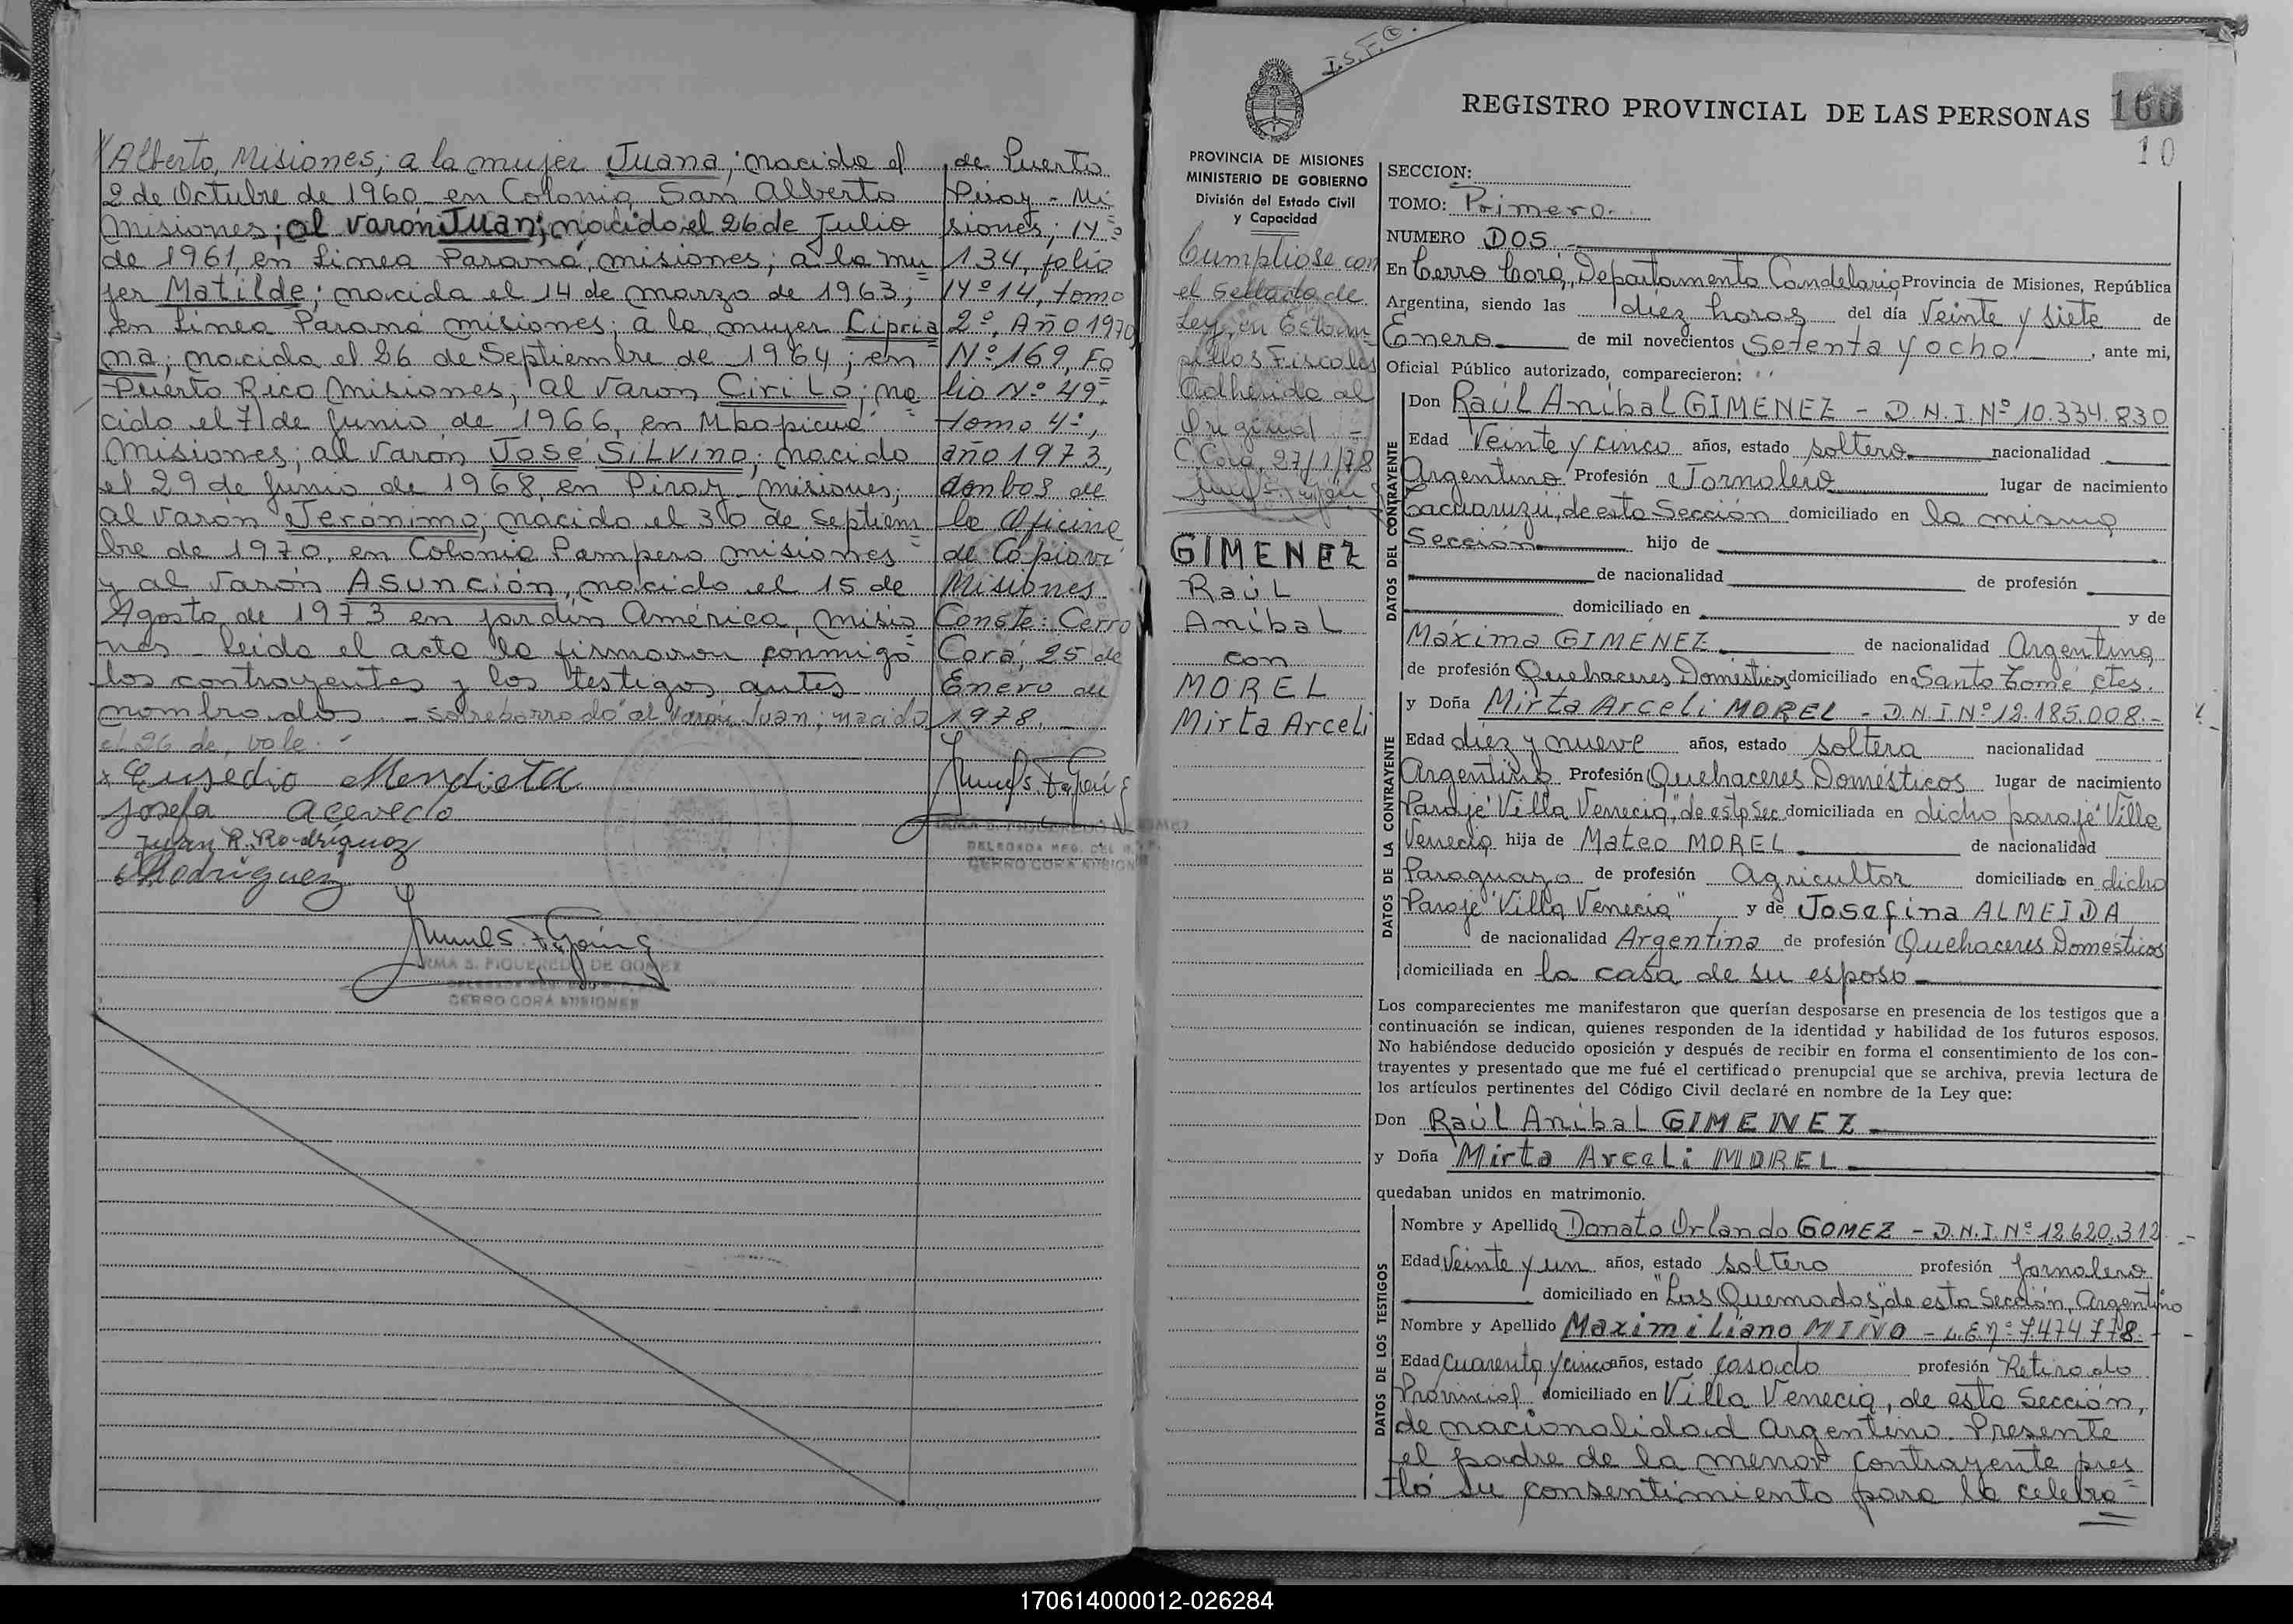 Alberto, Misiones; a la mujer Juana; nacida el
2 de Octubre de 1960 en Colonia San Alberto
Misiones; al varón Juan; nacido el 26 de Julio
de 1961, en Linea Paraná, misiones; a la mu=
jer Matilde; nacida el 14 de marzo de 1963;
en Linea Paraná misiones; a la mujer Cipria
na; nacida el 26 de Septiembre de 1964; en
Puerto Rico misiones; al varon Cirilo; na=
cido el 7 de Junio de 1966, en Mbopicuá
Misiones; al varón José Silvino; nacido
el 29 de Junio de 1968, en Piray misiones;
al varón Jerónimo; nacido el 30 de Septiem=
bre de 1970, en Colonia Pampero misiones
y al varón Asunción, nacido el 15 de
Agosto de 1973 en Jardín América, misio=
nes - Leida el acta la firmaron conmigo
los contrayentes y los testigos antes
nombrados. - sobreborrado "al varón Juan; nacido
el 26 de, vale.-
x Eusedio Mendieta
Josefa acevedo
Juan R. Rodríguez
Rodriguez
IRMA S. FIGUEREDO DE GOMEZ
CERRO CORA MISIONES
de Puerto
Piray - Mi
siones; Nº
134, folio
Nº 14, tomo
2º, Año 1970
Nº 169, Fo
lio Nº 49,
tomo 4º,
año 1973,
ambos de
la Oficina
de Capioví
Misiones.
Conste: Cerro
Corá, 25 de
Enero de
1978.
CERRO CORA MISIONES
I.S.F.
REGISTRO PROVINCIAL DE LAS PERSONAS
160
10
PROVINCIA DE MISIONES
MINISTERIO DE GOBIERNO
División del Estado Civil
y Capacidad
Cumpliose con
el Sellado de
Ley, en Estam
pillas Fiscales
Adherido al
Original
C. Corá, 27/1/78
GIMENEZ
Raúl
Aníbal
con
MOREL
Mirta Arceli
SECCION:
TOMO: Primero.-
NUMERO DOS.-
En Cerro Corá, Departamento Candelaria Provincia de Misiones, República
Argentina, siendo las diez horas del día Veinte y siete de
Enero de mil novecientos Setenta y ocho, ante mi,
Oficial Público autorizado, comparecieron:
DATOS DEL CONTRAYENTE
Don Raúl Aníbal GIMENEZ - D.N.I. Nº 10.334.830
Edad Veinte y cinco años, estado soltero nacionalidad
Argentino Profesión Jornalero lugar de nacimiento
Cacuaruzú, de esta Sección domiciliado en la misma
Sección hijo de
de nacionalidad de profesión
domiciliado en y de
Máxima GIMENEZ de nacionalidad Argentina
de profesión Quehaceres Domésticos domiciliado en Santo Tomé ctes.
DATOS DE LA CONTRAYENTE
y Doña Mirta Arceli MOREL - D.N.I Nº 12.185.008.-
Edad diez y nueve años, estado soltera nacionalidad
Argentina Profesión Quehaceres Domésticos lugar de nacimiento
Paraje "Villa Venecia", de esta Sec. domiciliada en dicho paraje "Villa
Venecia hija de Mateo MOREL de nacionalidad
Paraguaya de profesión Agricultor domiciliado en dicho
Paraje "Villa Venecia" y de Josefina ALMEIDA
de nacionalidad Argentina de profesión Quehaceres Domésticos
domiciliada en la casa de su esposo
Los comparecientes me manifestaron que querían desposarse en presencia de los testigos que a
continuación se indican, quienes responden de la identidad y habilidad de los futuros esposos.
No habiéndose deducido oposición y después de recibir en forma el consentimiento de los con-
trayentes y presentado que me fué el certificado prenupcial que se archiva, previa lectura de
los artículos pertinentes del Código Civil declaré en nombre de la Ley que:
Don Raúl Aníbal GIMENEZ
y Doña Mirta Arceli MOREL
quedaban unidos en matrimonio.
DATOS DE LOS TESTIGOS
Nombre y Apellido Donato Orlando GOMEZ - D.N.I. Nº 12.620.312 -
Edad Veinte y un años, estado soltero profesión Jornalero
domiciliado en "Los Quemados", de esta Sección, Argentino
Nombre y Apellido Maximiliano MIÑO - L.E. nº 7.474.778.-
Edad Cuarenta y cinco años, estado casado profesión Retirado
Provincial domiciliado en Villa Venecia, de esta Sección,
de nacionalidad Argentino. Presente
el padre de la menor contrayente pres
tó su consentimiento para la celebra=
170614000012-026284